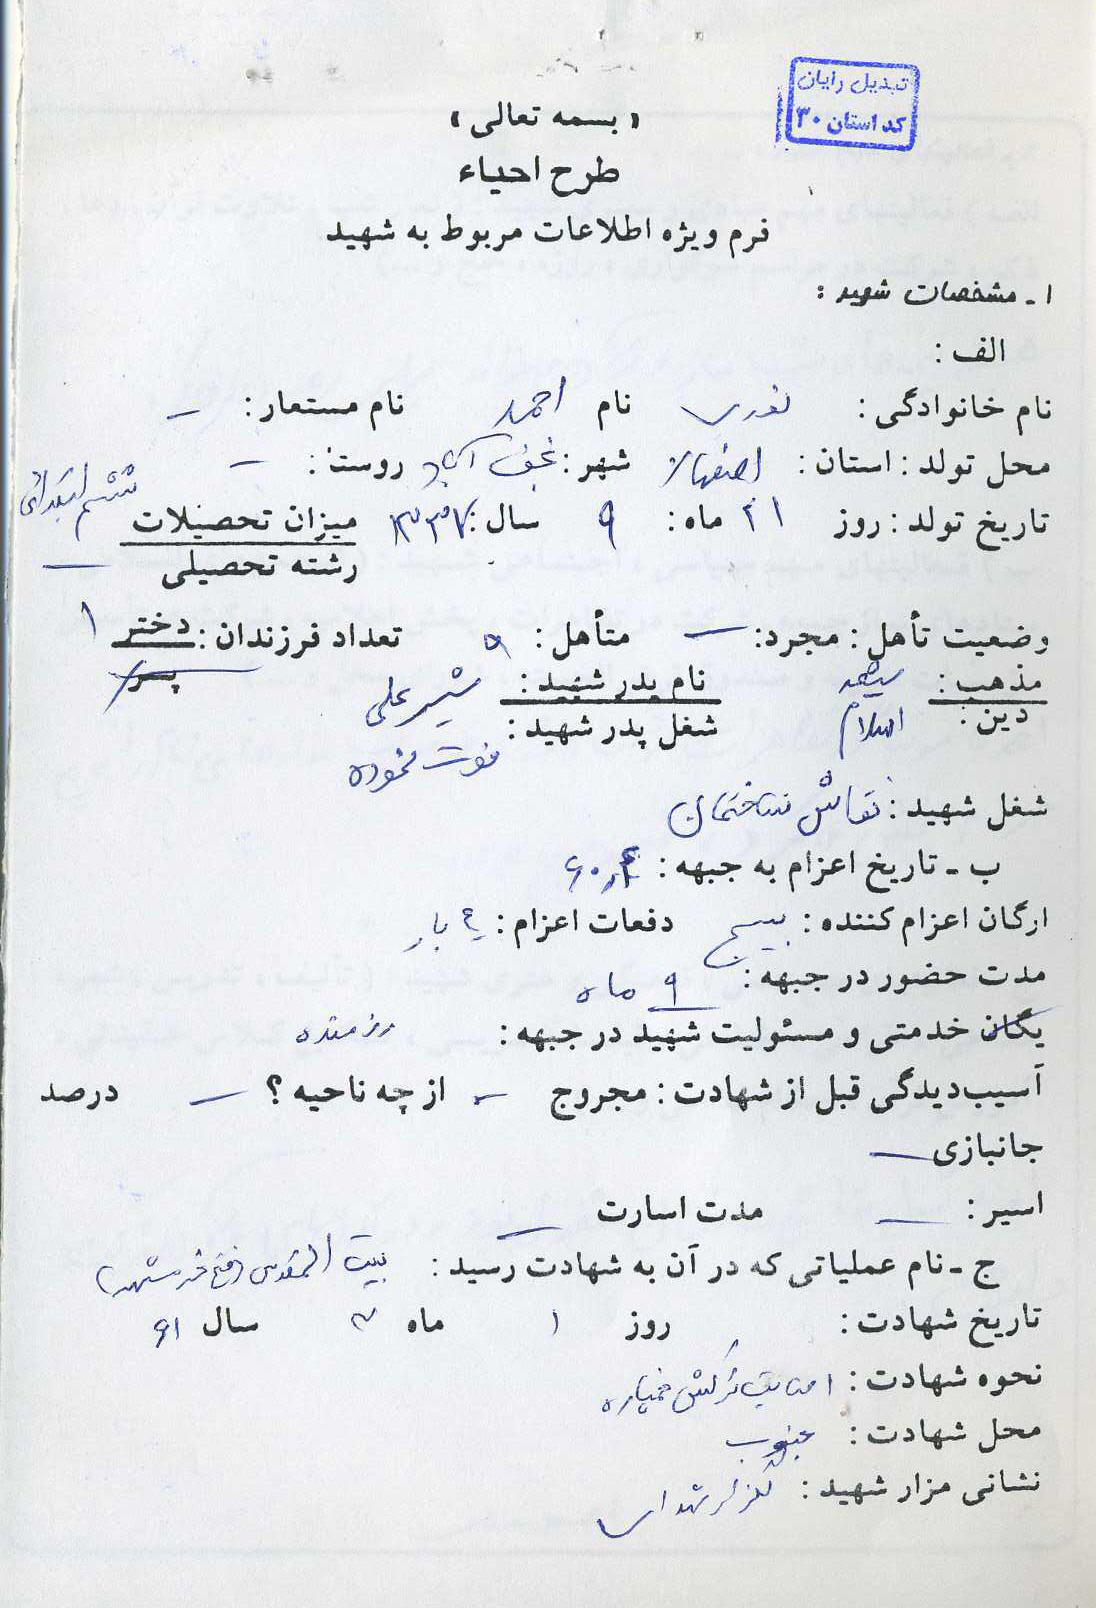 تبدیل رایان
کد استان ۳۰
« بسمه تعالی »
طرح احیاء
فرم ویژه اطلاعات مربوط به شهید
۱ ـ مشخصات شهید :
الف :
نام خانوادگی : نوری نام احمد نام مستعار : –
محل تولد : استان : اصفهان شهر : نجف آباد روستا : –
تاریخ تولد : روز ۲۱ ماه : ۹ سال : ۱۳۳۷ میزان تحصیلات ششم ابتدائی
رشته تحصیلی –
وضعیت تأهل : مجرد : – متأهل : تعداد فرزندان : دختر ۱
پسر
مذهب : شیعه نام پدر شهید : شیرعلی
دین : اسلام شغل پدر شهید : فوت نموده
شغل شهید : نقاش ساختمان
ب ـ تاریخ اعزام به جبهه :
ارگان اعزام کننده : بسیج دفعات اعزام : بار
مدت حضور در جبهه : ۹ ماه
یگان خدمتی و مسئولیت شهید در جبهه : رزمنده
آسیب‌دیدگی قبل از شهادت : مجروح – از چه ناحیه ؟ – درصد
جانبازی –
اسیر : – مدت اسارت –
ج ـ نام عملیاتی که در آن به شهادت رسید : بیت المقدس (فتح خرمشهر)
تاریخ شهادت : روز ۱ ماه ۳ سال ۶۱
نحوه شهادت : اصابت ترکش خمپاره
محل شهادت : جنوب
نشانی مزار شهید : گلزار شهدای